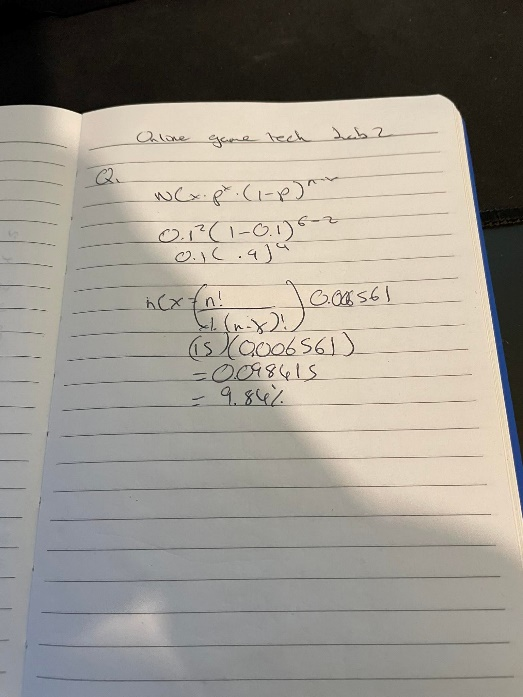 Online game tech Lab 2
Q.
nCx · p^x · (1-p)^n-x
0.1²(1-0.1)^6-2
0.1( .9)^4
nCx = (n! / x!(n-x)!) 0.006561
(15)(0.006561)
= 0.098415
= 9.84%